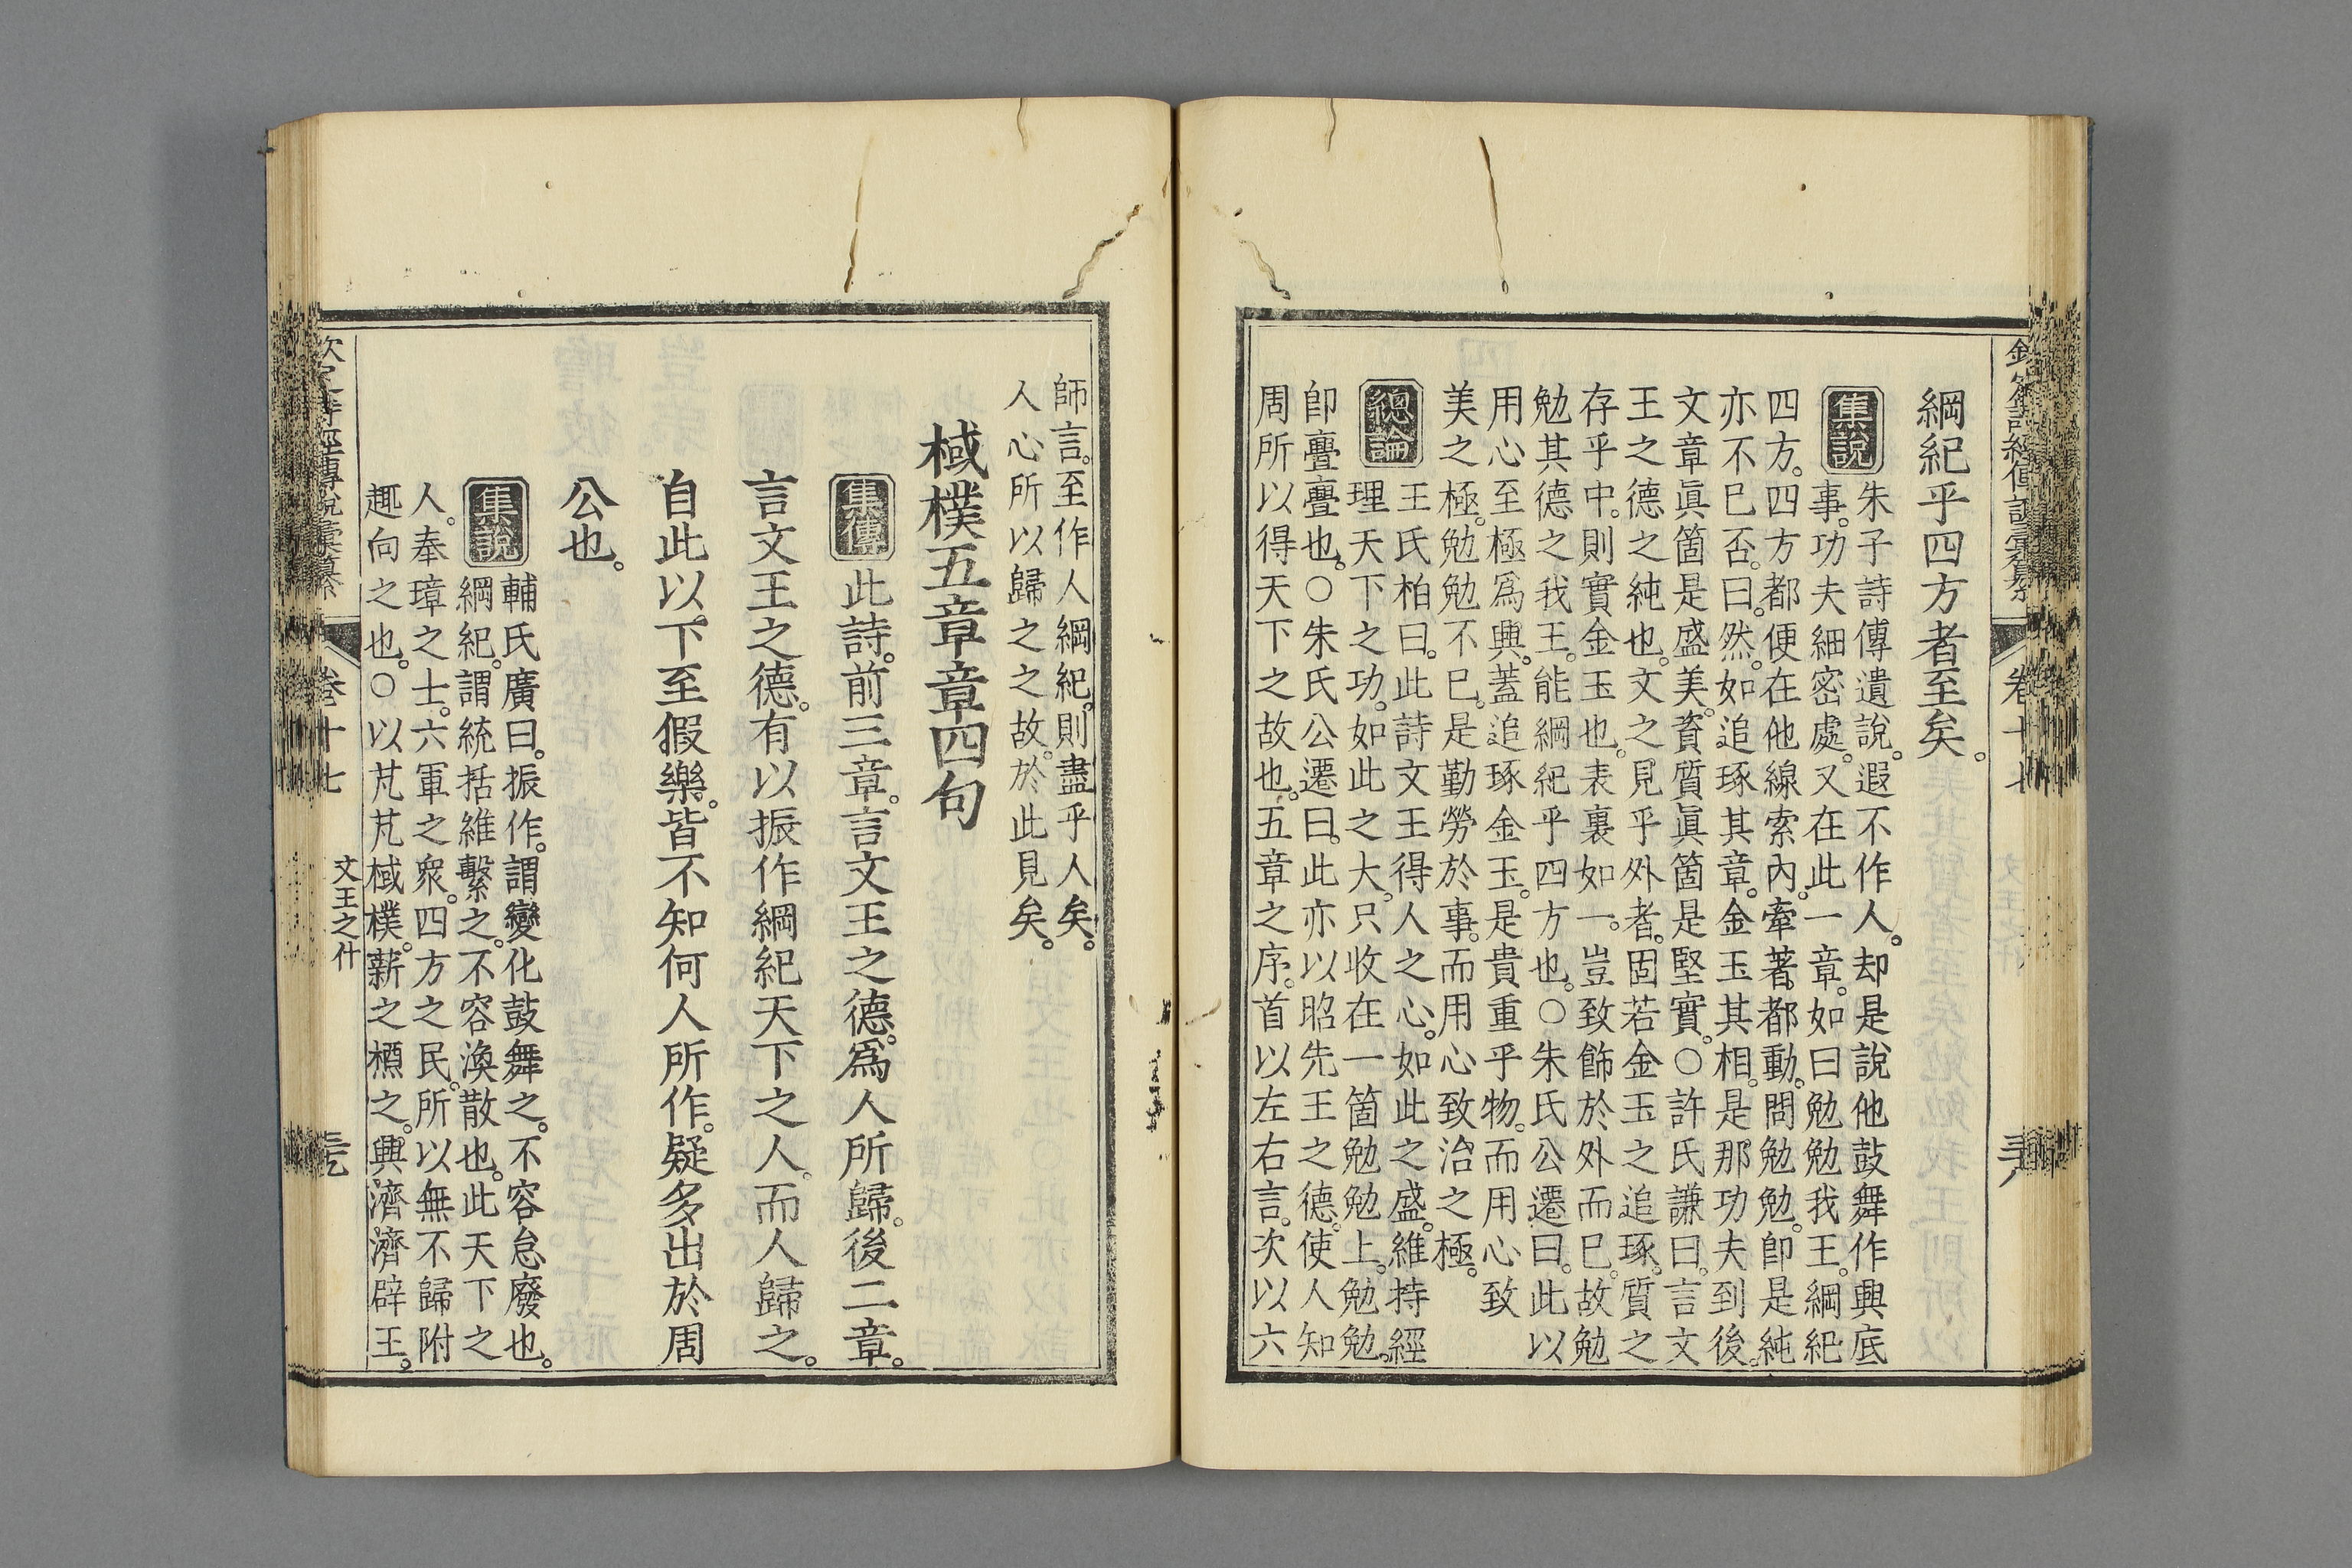 綱紀乎四方者至矣。
集說
朱子詩傳遺說。遐不作人。却是說他鼓舞作興底
事。功夫細密處。又在此一章。如曰勉勉我王。綱紀
四方。四方都便在他線索內。牽著都動。問勉勉。即是純
亦不已否。曰。然。如追琢其章。金玉其相。是那功夫到後。
文章眞箇是盛美。資質眞箇是堅實。○許氏謙曰。言文
王之德之純也。文之見乎外者。固若金玉之追琢。質之
存乎中。則實金玉也。表裏如一。豈致飾於外而已。故勉
勉其德之我王。能綱紀乎四方也。○朱氏公遷曰。此以
用心至極爲興。蓋追琢金玉。是貴重乎物。而用心致
美之極。勉勉不已。是勤勞於事。而用心致治之極。
總論
王氏柏曰。此詩文王得人之心。如此之盛。維持經
理天下之功。如此之大。只收在一箇勉勉上。勉勉。
卽亹亹也。○朱氏公遷曰。此亦以昭先王之德。使人知
周所以得天下之故也。五章之序。首以左右言。次以六
師言。至作人綱紀。則盡乎人矣。
人心所以歸之之故。於此見矣。
棫樸五章章四句
集傳
此詩。前三章。言文王之德。爲人所歸。後二章。
言文王之德。有以振作綱紀天下之人。而人歸之。
自此以下至假樂。皆不知何人所作。疑多出於周
公也。
集說
輔氏廣曰。振作。謂變化鼓舞之。不容怠廢也。
綱紀。謂統括維繫之。不容渙散也。此天下之
人。奉璋之士。六軍之衆。四方之民。所以無不歸附
趣向之也。○以芃芃棫樸。薪之槱之。興濟濟辟王。
卷十七
文王之什